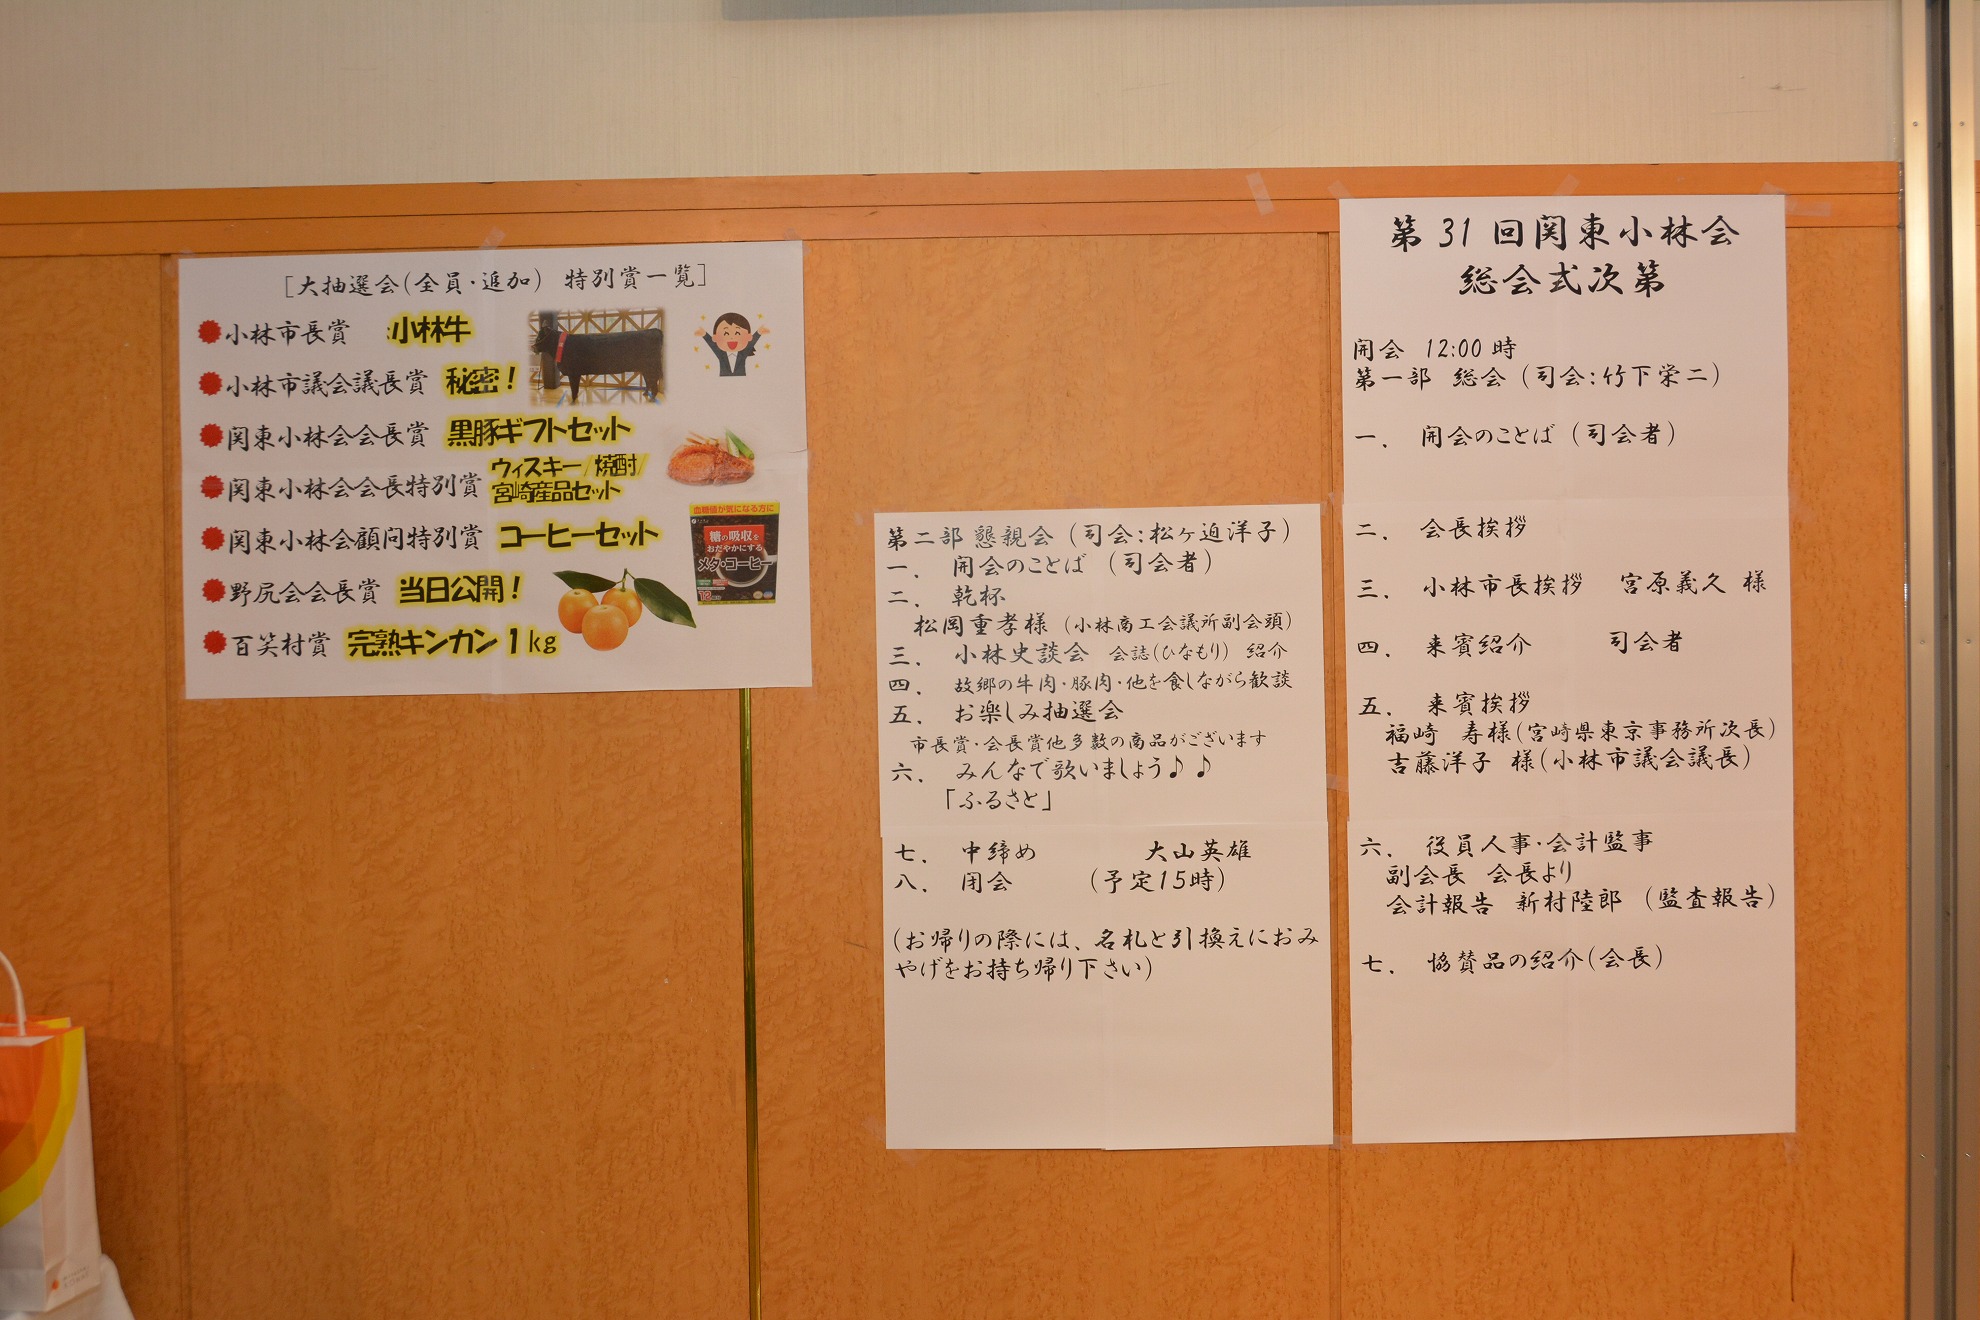 [大抽選会(全員・追加) 特別賞一覧]
小林市長賞 :小林牛
小林市議会議長賞 秘密！
関東小林会会長賞 黒豚ギフトセット
関東小林会会長特別賞 ウィスキー/焼酎/
宮崎産品セット
関東小林会顧問特別賞 コーヒーセット
野尻会会長賞 当日公開！
百笑村賞 完熟キンカン1kg
血糖値が気になる方に
糖の吸収を
おだやかにする
メタ・コーヒー
第二部 懇親会 (司会:松ヶ迫洋子)
一. 開会のことば (司会者)
二. 乾杯
松岡重孝様 (小林商工会議所副会頭)
三. 小林史談会 会誌(ひなもり) 紹介
四. 故郷の牛肉・豚肉・他を食しながら歓談
五. お楽しみ抽選会
市長賞・会長賞他多数の商品がございます
六. みんなで歌いましょう♪♪
「ふるさと」
七. 中締め 大山英雄
八. 閉会 (予定15時)
(お帰りの際には、名札と引換えにおみ
やげをお持ち帰り下さい)
第31回関東小林会
総会式次第
開会 12:00時
第一部 総会 (司会:竹下栄二)
一. 開会のことば (司会者)
二. 会長挨拶
三. 小林市長挨拶 宮原義久 様
四. 来賓紹介 司会者
五. 来賓挨拶
福崎 寿様(宮崎県東京事務所次長)
吉藤洋子 様(小林市議会議長)
六. 役員人事・会計監事
副会長 会長より
会計報告 新村陸郎 (監査報告)
七. 協賛品の紹介(会長)